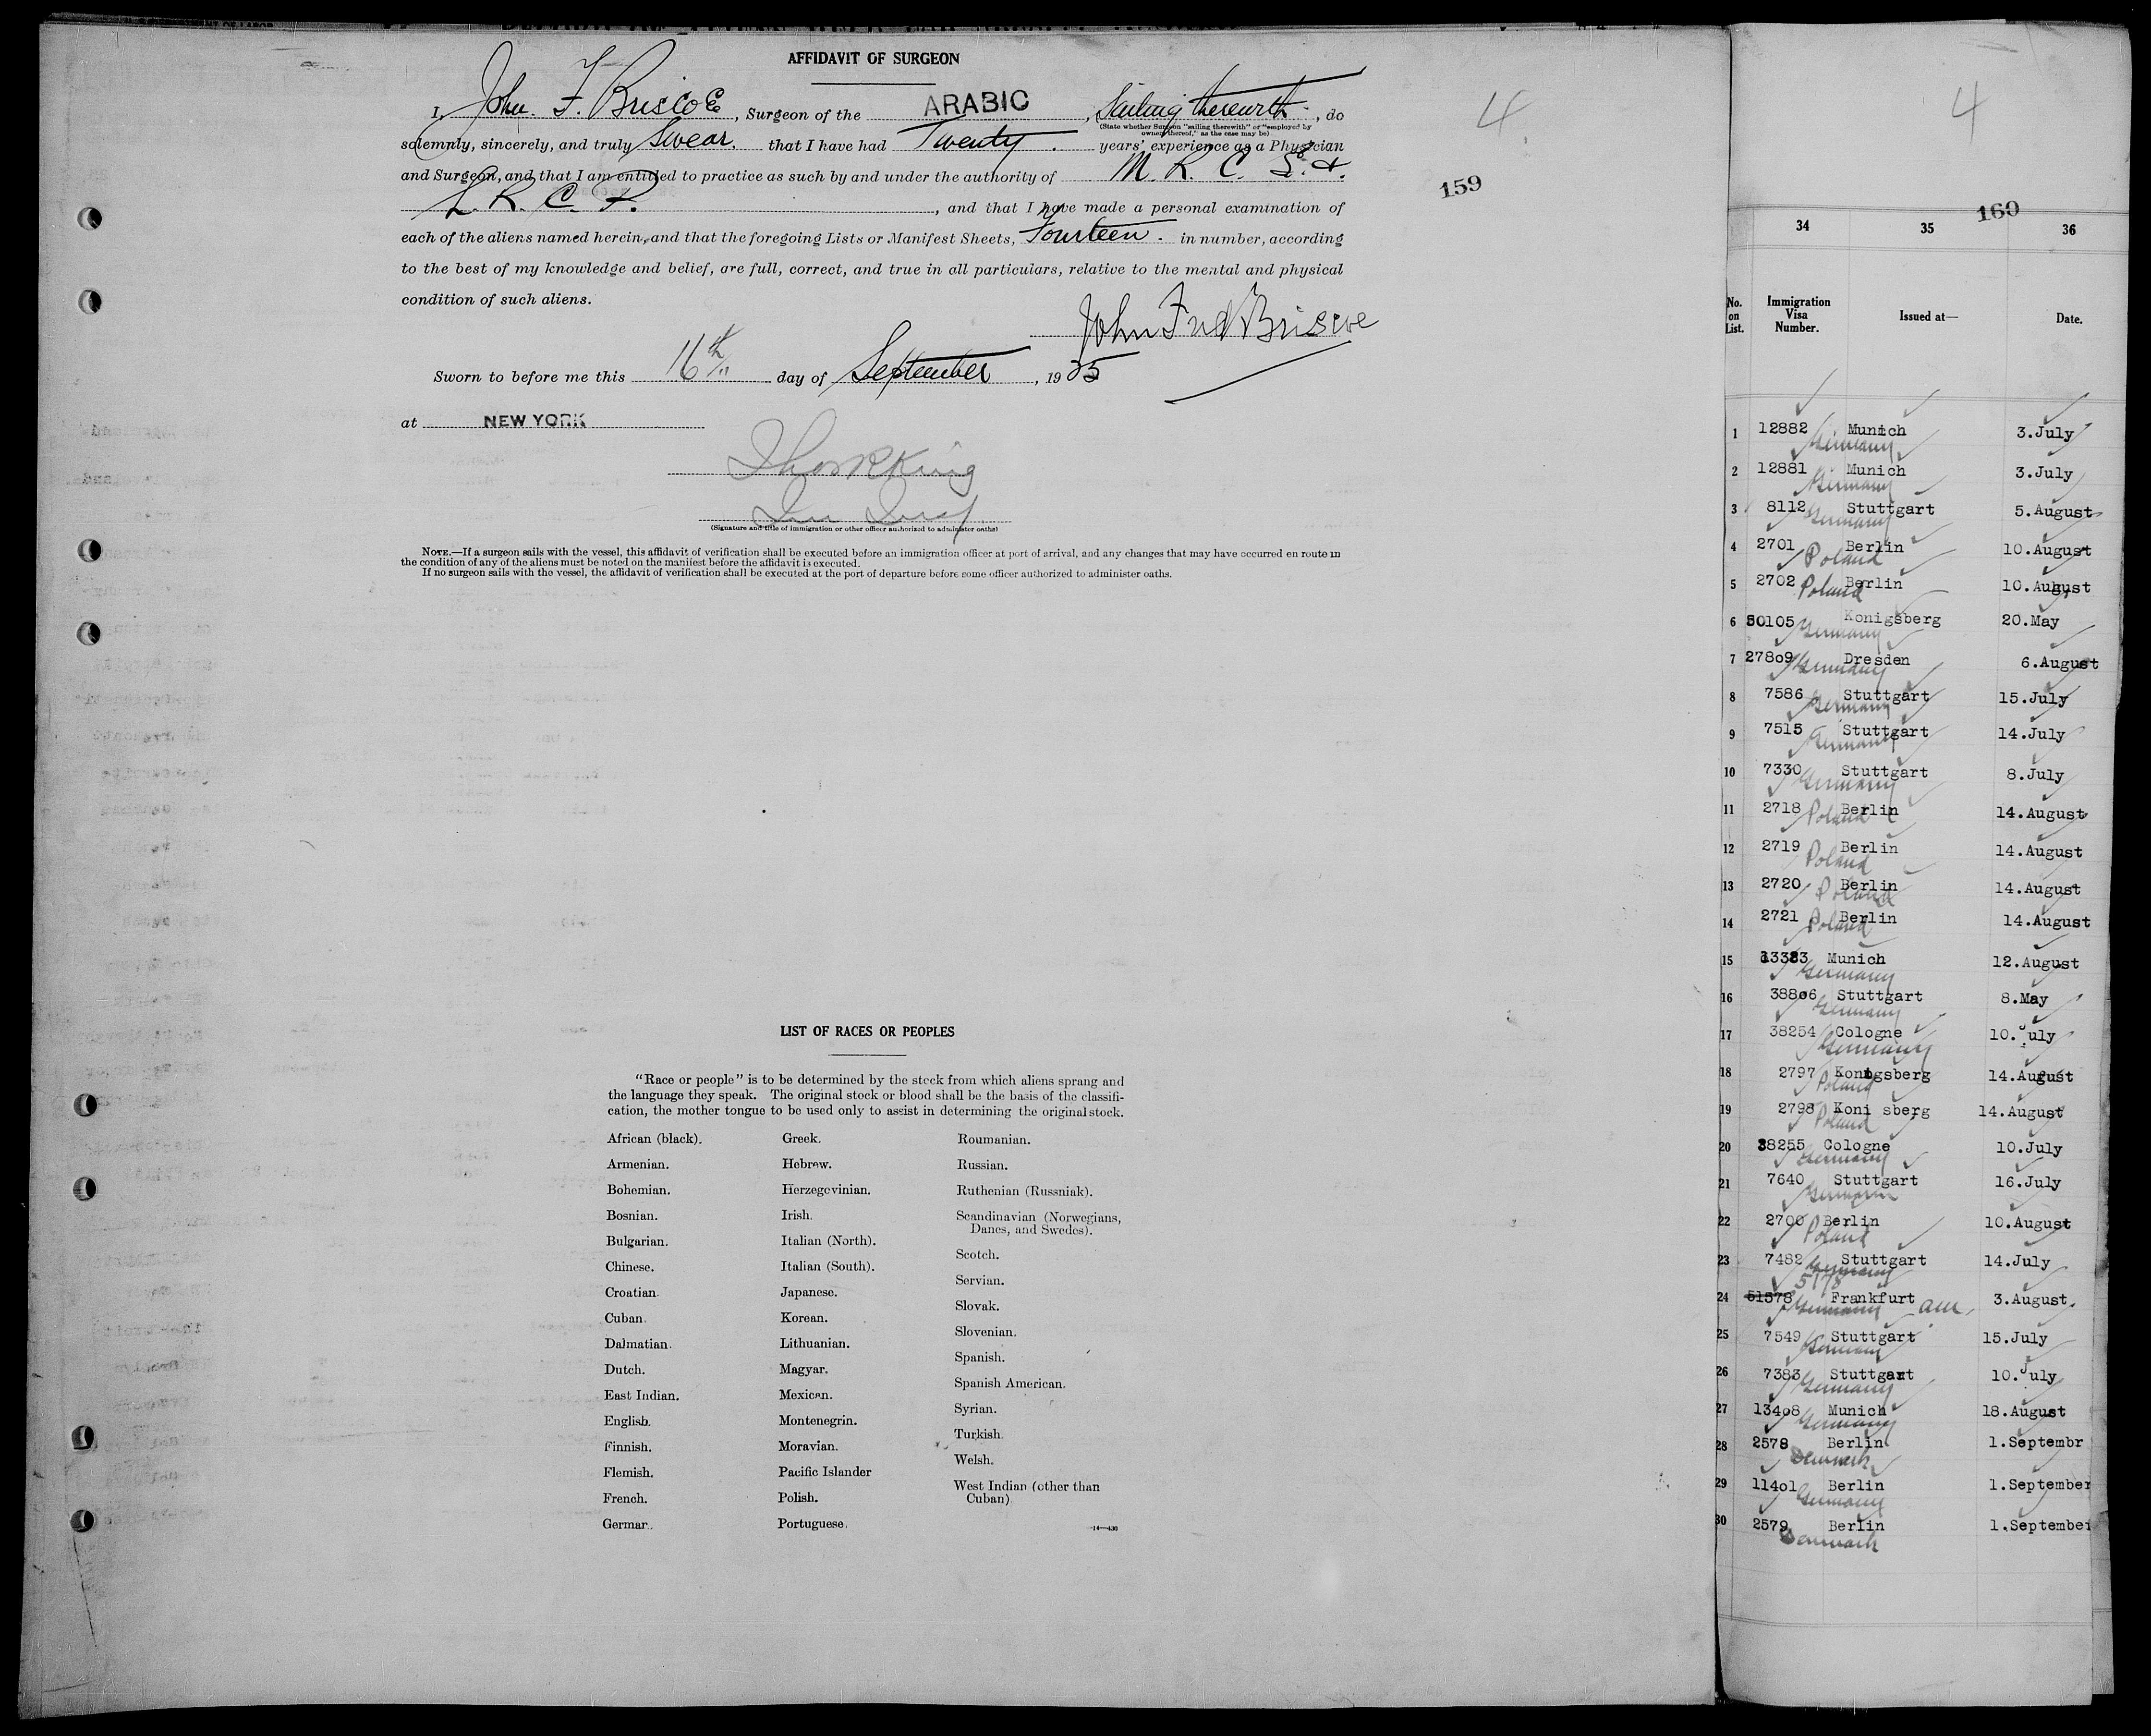 AFFIDAVIT OF SURGEON
I, John. F. Briscoe, Surgeon of the ARABIC, Sailing therewith, do
(State whether Surgeon "sailing therewith" or "employed by
owners thereof," as the case may be)
solemnly, sincerely, and truly Swear. that I have had Twenty. years' experience as a Physician
and Surgeon, and that I am entitled to practice as such by and under the authority of M. R. C. S. &.
L. R. C. P., and that I have made a personal examination of
each of the aliens named herein, and that the foregoing Lists or Manifest Sheets, Fourteen. in number, according
to the best of my knowledge and belief, are full, correct, and true in all particulars, relative to the mental and physical
condition of such aliens.
John Fred Briscoe
Sworn to before me this 16th day of September, 1925
at NEW YORK
(Signature and title of immigration or other officer authorized to administer oaths)
NOTE.—If a surgeon sails with the vessel, this affidavit of verification shall be executed before an immigration officer at port of arrival, and any changes that may have occurred en route in
the condition of any of the aliens must be noted on the manifest before the affidavit is executed.
If no surgeon sails with the vessel, the affidavit of verification shall be executed at the port of departure before some officer authorized to administer oaths.
4
159
LIST OF RACES OR PEOPLES
"Race or people" is to be determined by the stock from which aliens sprang and
the language they speak. The original stock or blood shall be the basis of the classifi-
cation, the mother tongue to be used only to assist in determining the original stock.
African (black).
Armenian.
Bohemian.
Bosnian.
Bulgarian.
Chinese.
Croatian.
Cuban.
Dalmatian.
Dutch.
East Indian.
English.
Finnish.
Flemish.
French.
German.
Greek.
Hebrew.
Herzegovinian.
Irish.
Italian (North).
Italian (South).
Japanese.
Korean.
Lithuanian.
Magyar.
Mexican.
Montenegrin.
Moravian.
Pacific Islander
Polish.
Portuguese.
Roumanian.
Russian.
Ruthenian (Russniak).
Scandinavian (Norwegians,
Danes, and Swedes).
Scotch.
Servian.
Slovak.
Slovenian.
Spanish.
Spanish American.
Syrian.
Turkish.
Welsh.
West Indian (other than
Cuban).
4
160
34 35 36
No. on List. Immigration Visa Number. Issued at— Date.
1 12882 Munich 3.July
Germany
2 12881 Munich 3.July
Germany
3 8112 Stuttgart 5.August
Germany
4 2701 Berlin 10.August
Poland
5 2702 Berlin 10.August
Poland
6 30105 Konigsberg 20.May
Germany
7 27809 Dresden 6.August
Germany
8 7586 Stuttgart 15.July
Germany
9 7515 Stuttgart 14.July
Germany
10 7330 Stuttgart 8.July
Germany
11 2718 Berlin 14.August
Poland
12 2719 Berlin 14.August
Poland
13 2720 Berlin 14.August
Poland
14 2721 Berlin 14.August
Poland
15 13383 Munich 12.August
Germany
16 38806 Stuttgart 8.May
Germany
17 38254 Cologne 10.July
Germany
18 2797 Konigsberg 14.August
Poland
19 2798 Koni sberg 14.August
Poland
20 38255 Cologne 10.July
Germany
21 7640 Stuttgart 16.July
Germany
22 2700 Berlin 10.August
Poland
23 7482 Stuttgart 14.July
Germany
5178
24 51578 Frankfurt 3.August.
Germany
25 7549 Stuttgart 15.July
Germany
26 7383 Stuttgart 10.July
Germany
27 13408 Munich 18.August
Germany
28 2578 Berlin 1.Septembr
Denmark
29 11401 Berlin 1.September
Germany
30 2579 Berlin 1.September
Denmark